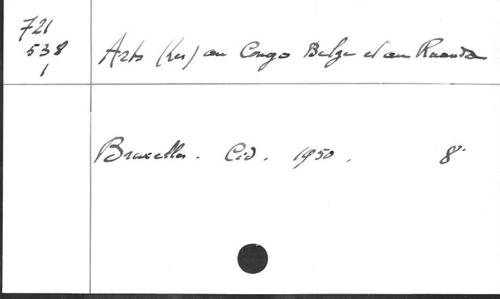 721
538
1
Arts (Les) au Congo Belge et au Ruanda
Bruxelles. Cid. 1950. 8°